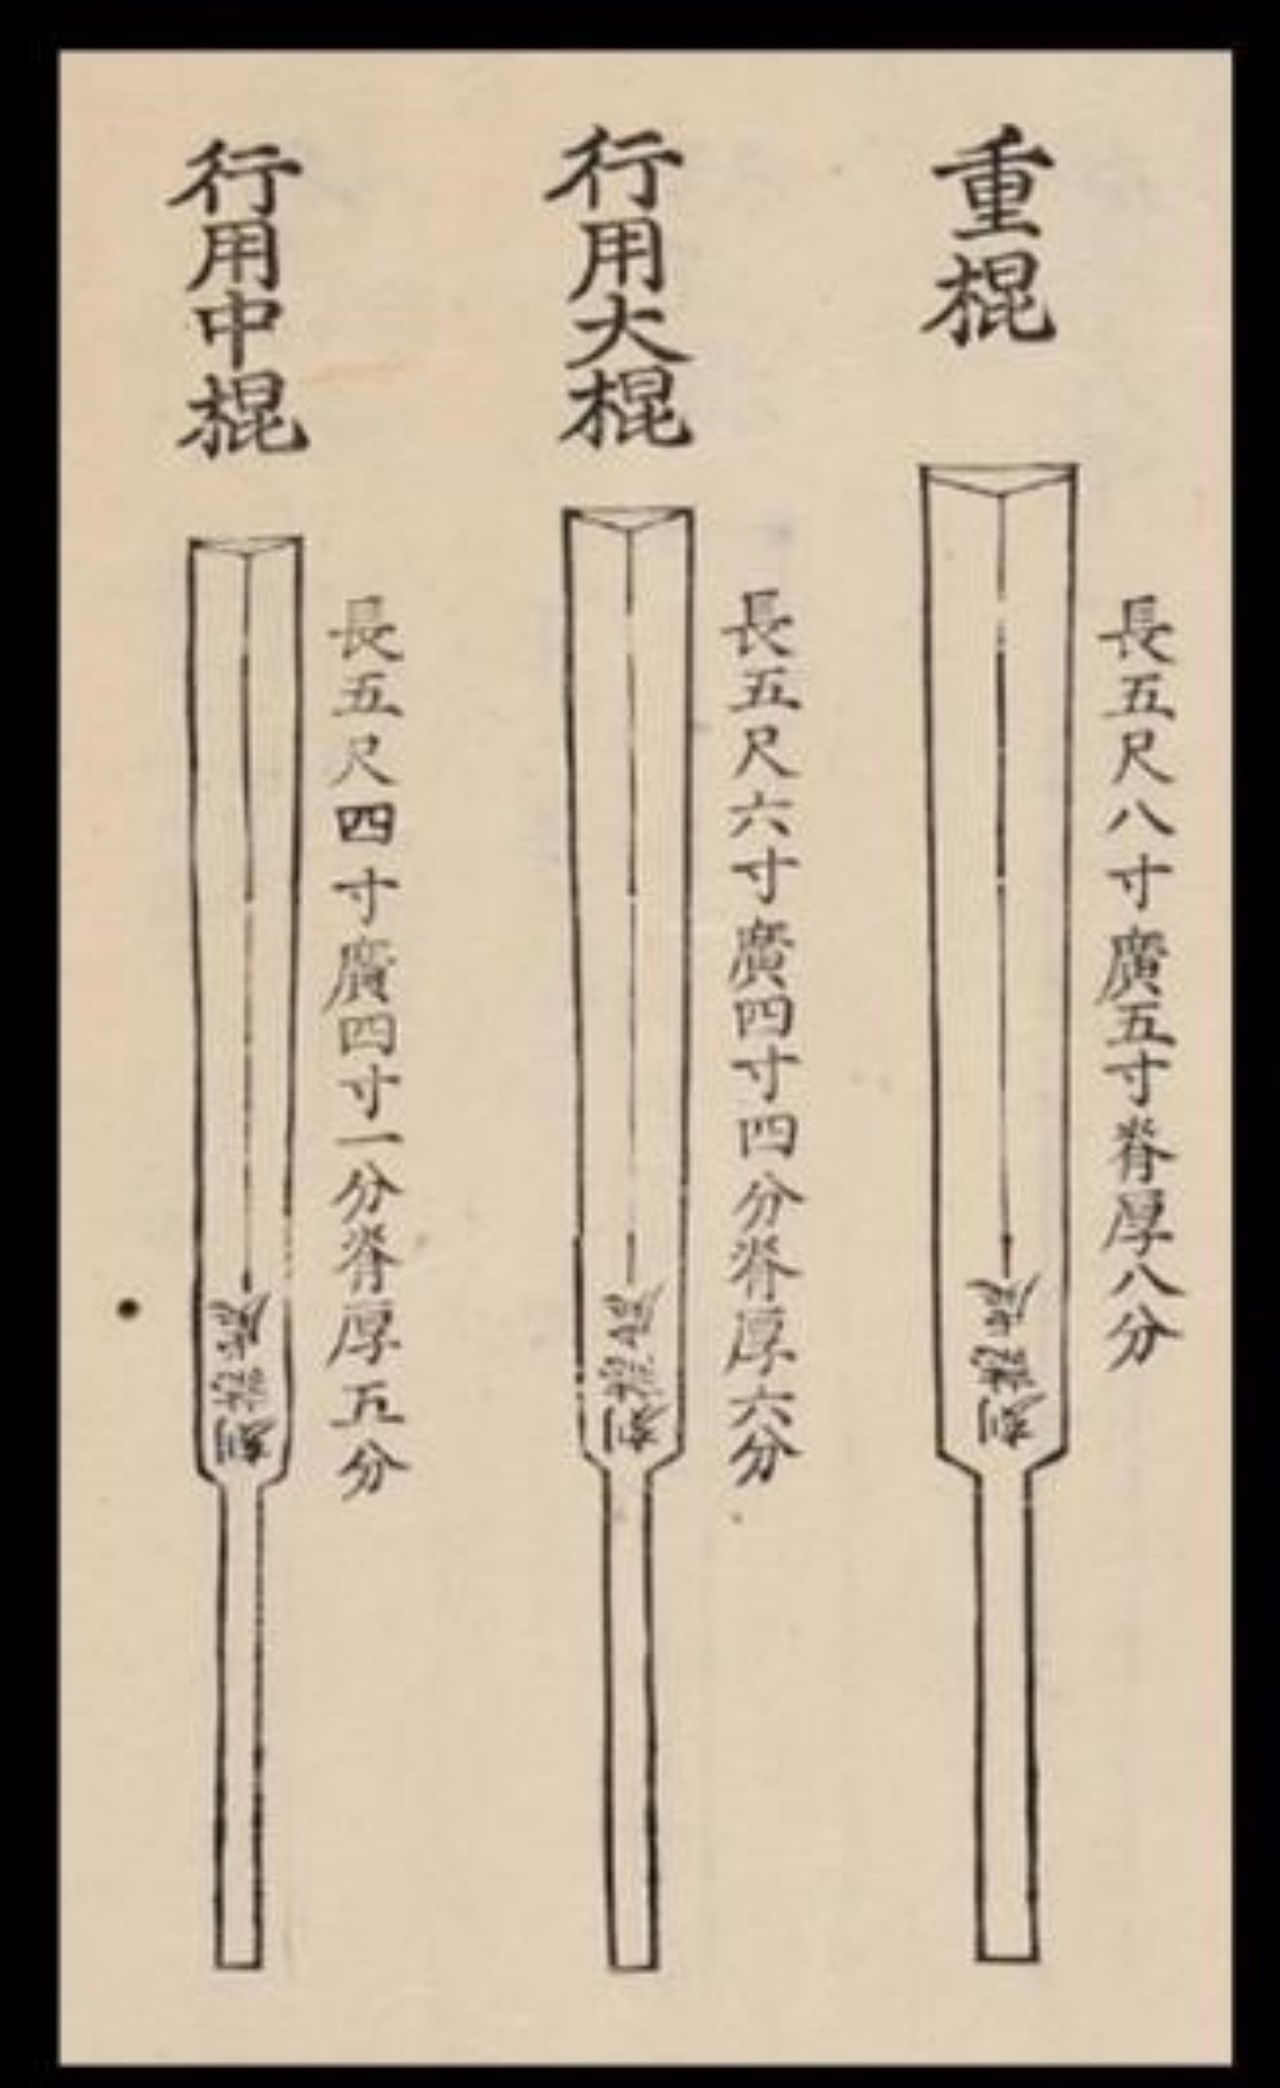 重棍
長五尺八寸廣五寸脊厚八分
行用大棍
長五尺六寸廣四寸四分脊厚六分
行用中棍
長五尺四寸廣四寸一分脊厚五分